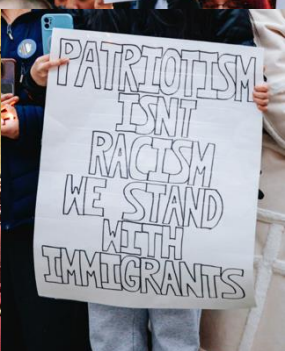 PATRIOTISM
ISNT
RACISM
WE STAND
WITH
IMMIGRANTS